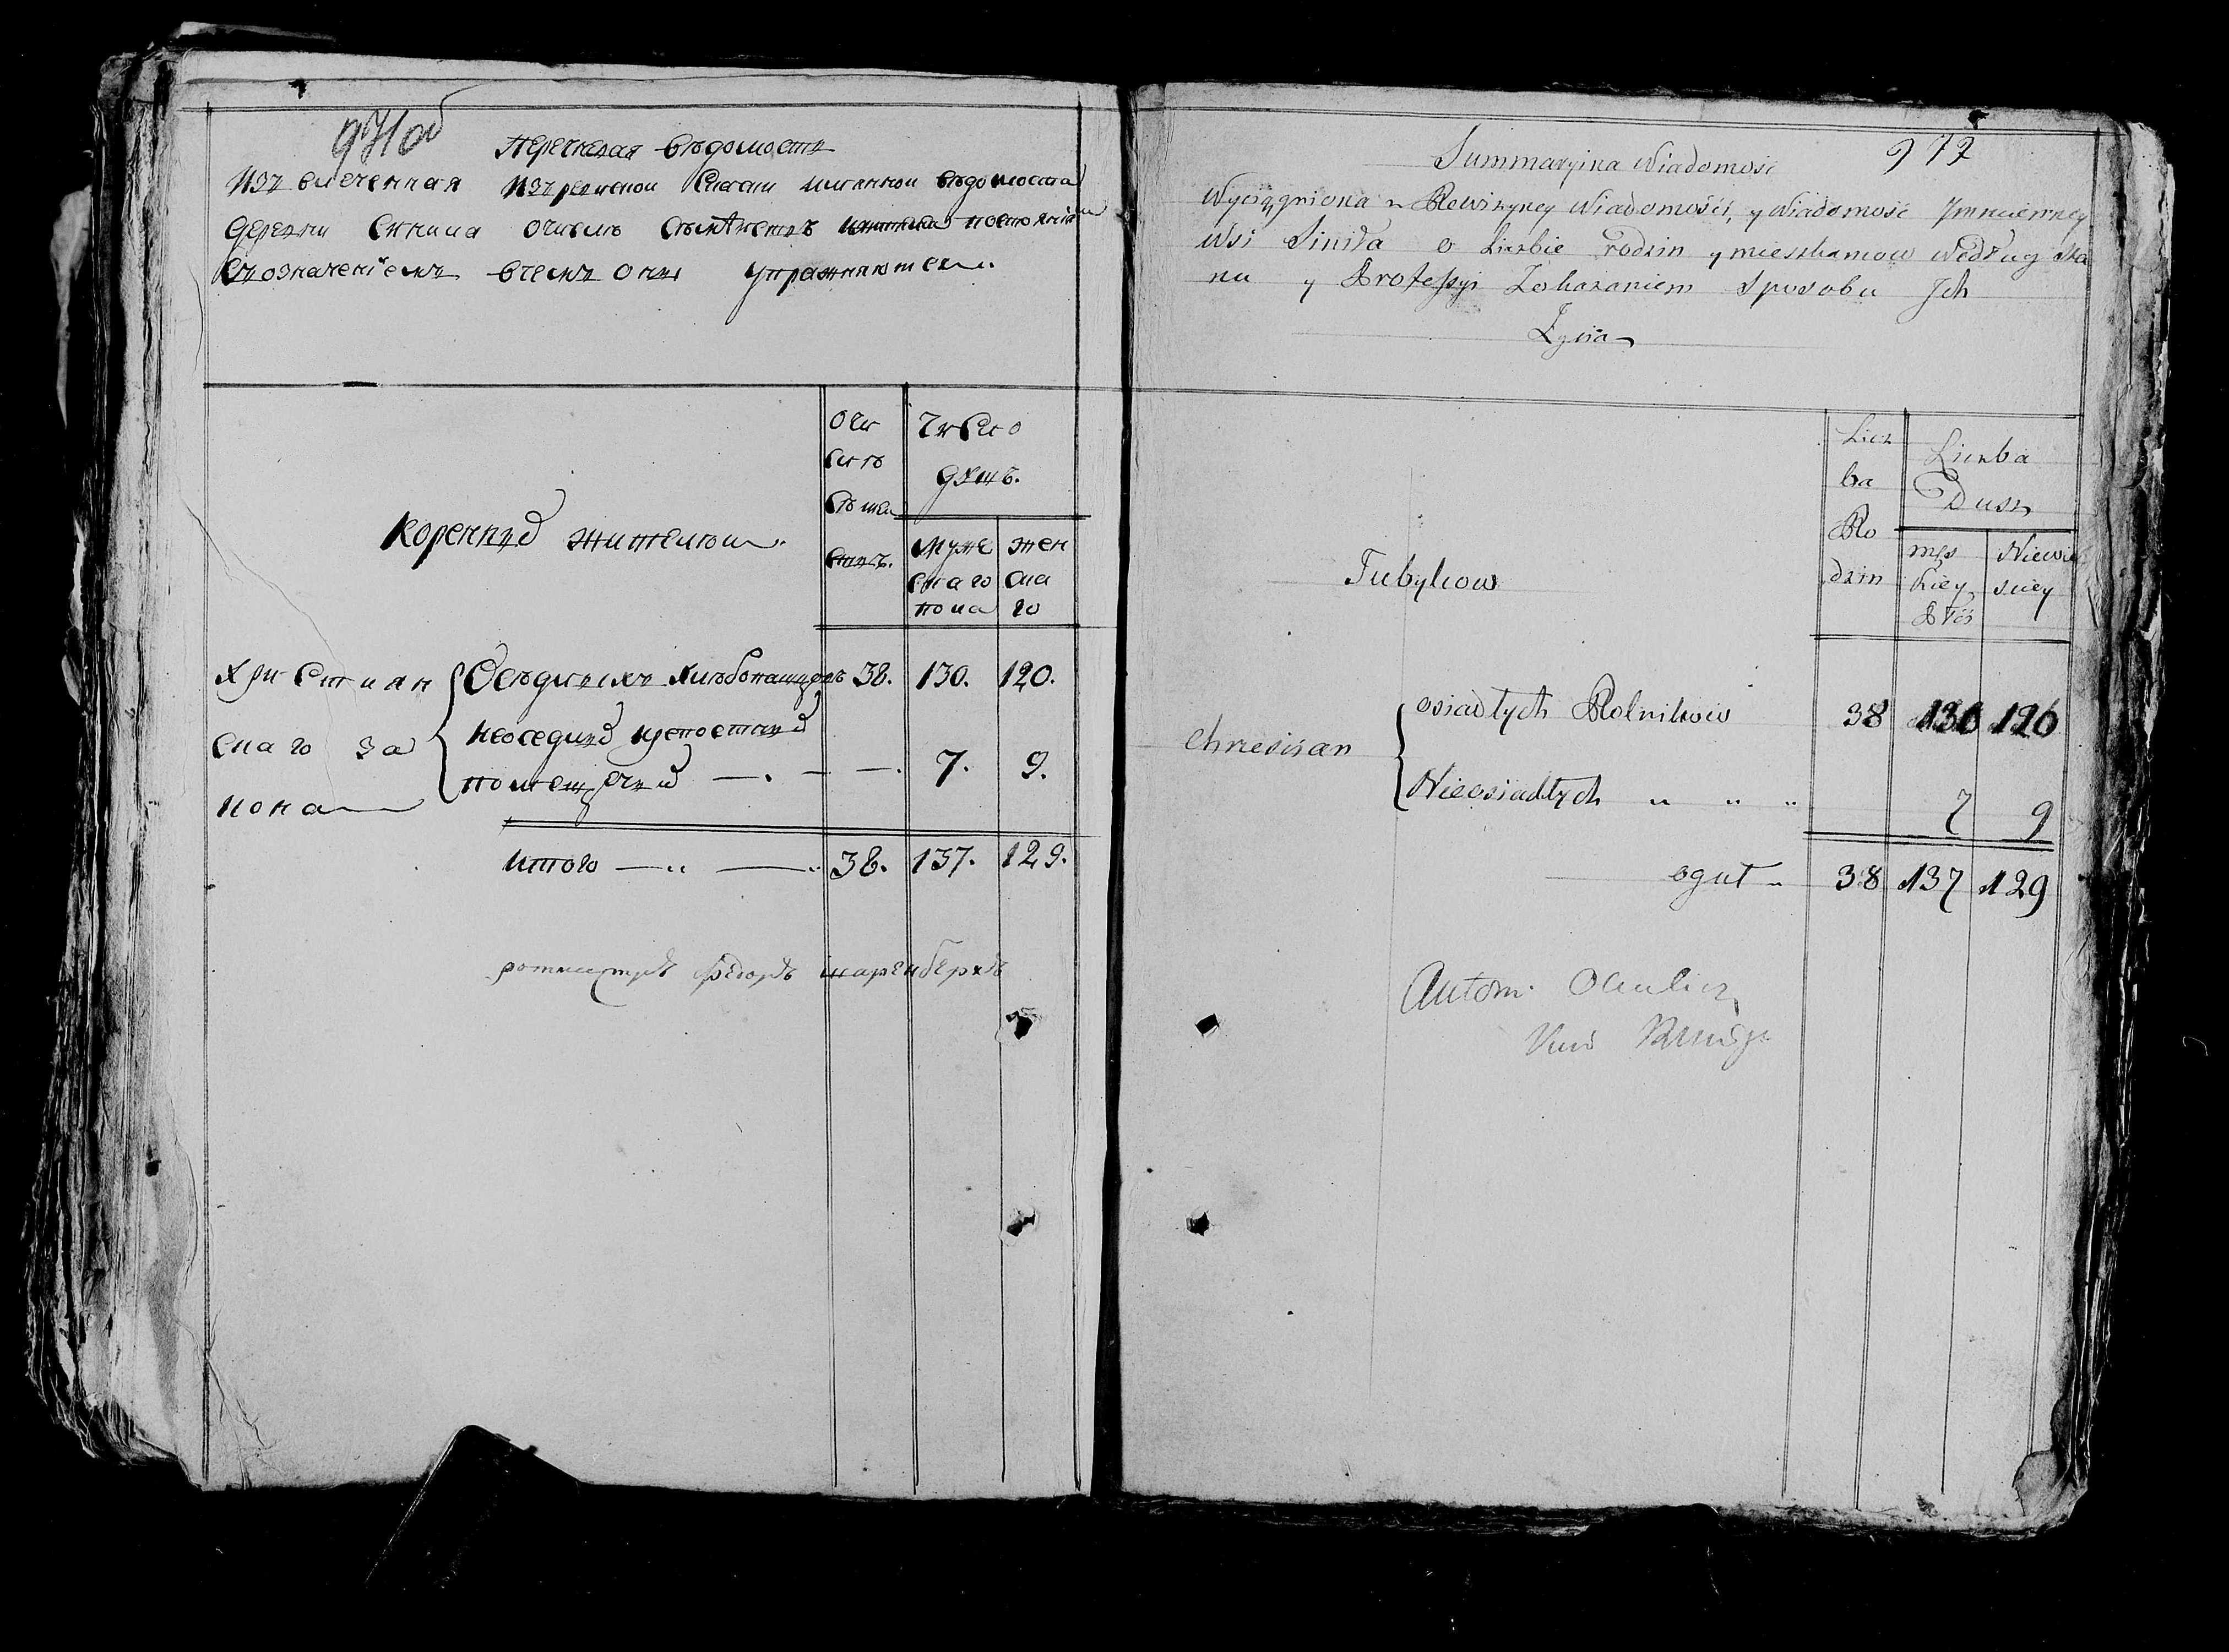 971об
Перечневая ведомость
Извлеченная изревиской Скаски именной ведомости
Деревни Синила очисле Съмействъ
Съозначениемъ вчемъ оны упражняются
Коренныя жители
Очи
слъ
Съмеи
ствъ.
Число
душъ.
Муже
скаго
пола
жен
ска
го
Християн
скаго за
кона
Оседлыхъ хлебопашцовъ 38. 130. 120.
неоседлыя крепостныя
помещичия — . — — . 7. 9.
Итого — „ — „ 38. 137. 129.
ротмистръ федоръ
972
Summaryina Wiadomość
Wyciągniona z Rewizyney Wiadomości, y Wiadomość Jmienney
Wsi Siniła o Liczbie rodzin y mieszkancow Według Sta
nu y Professyi Zokazaniem Sposobu Jch
Życia
Tubylcow
Licz
ba
Ro
dzin
Liczba
Dusz
męs
kiey
Płci
Niewie
sciey
Chrzescian
osiadłych Rolnikow 38 130 120
Nieosiadłych „ „ „ 7 9
oguł „ 38 137 129
Antoni